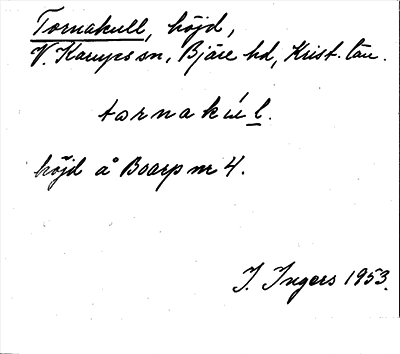 Tornakull, höjd,
V. Karups sn, Bjäre hd, Krist. län.
tornakúl.
höjd å Boarp nr 4.
I. Ingers 1953.